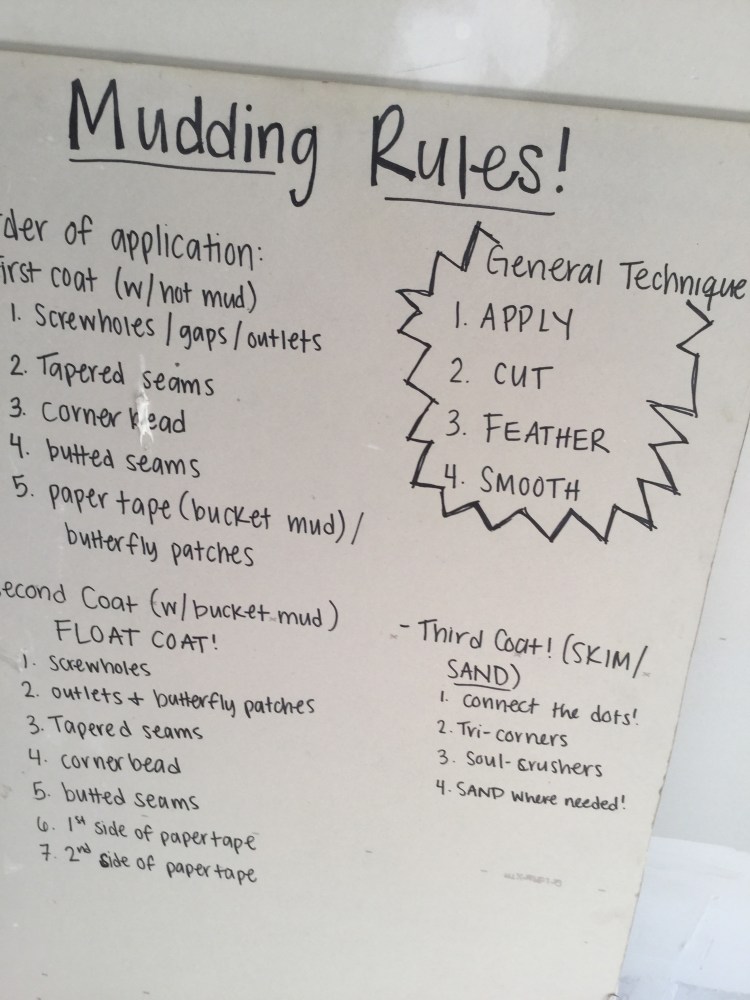 Mudding Rules!
der of application:
irst coat (w/hot mud)
1. Screwholes/gaps/outlets
2. Tapered seams
3. corner bead
4. butted seams
5. paper tape (bucket mud)/
butterfly patches
econd Coat (w/bucket mud)
FLOAT COAT!
1. Screwholes
2. outlets + butterfly patches
3. Tapered seams
4. corner bead
5. butted seams
6. 1st side of paper tape
7. 2nd side of paper tape
General Technique
1. APPLY
2. CUT
3. FEATHER
4. SMOOTH
- Third Coat! (SKIM/
SAND)
1. connect the dots!
2. Tri-corners
3. Soul-crushers
4. SAND where needed!